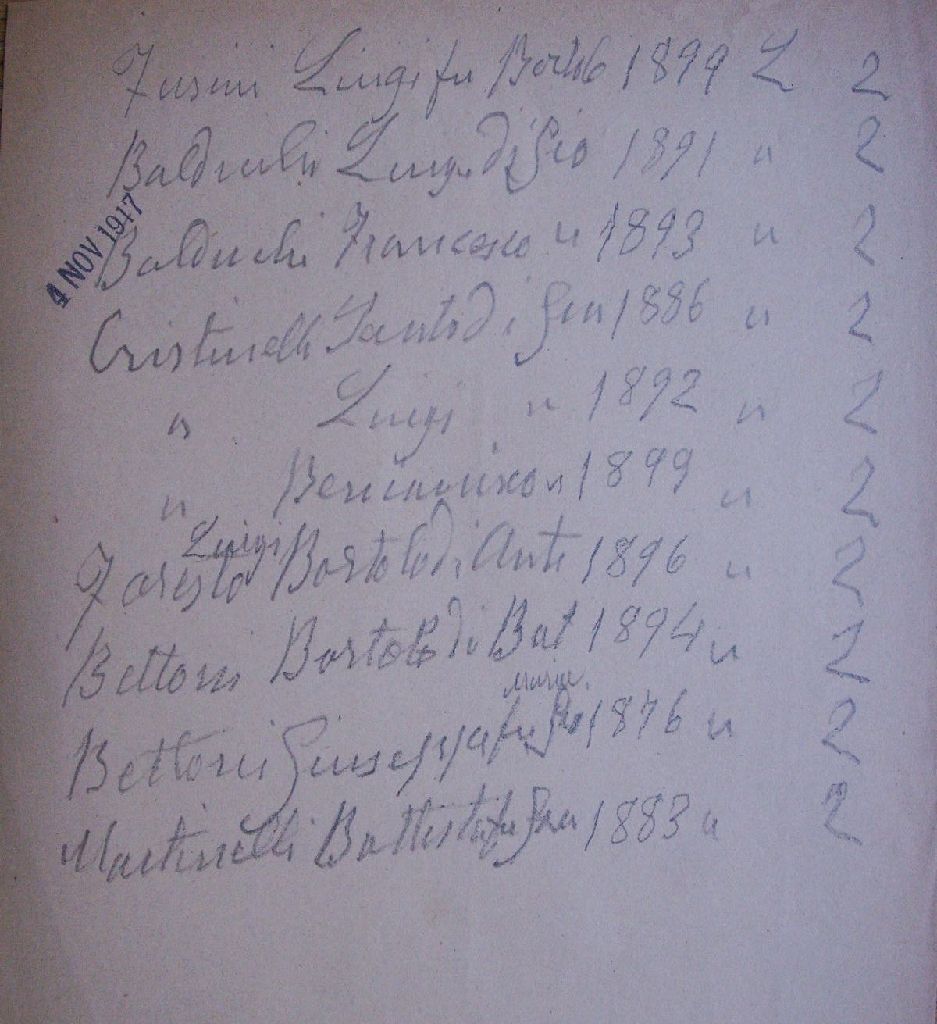 Fusini Luigi fu Bortolo 1899 L 2
Balduchi Luigi di Gio 1891 " 2
4 NOV 1917
Balduchi Francesco " 1893 " 2
Cristinelli Santo di Gio 1886 " 2
" Luigi " 1892 " 2
" Beniamino " 1899 " 2
Luigi
Foresto Bortolo di Ant 1896 " 2
Bettoni Bortolo di Bat 1894 " 2
Maria
Bettoni Giuseppa fu Gio 1876 " 2
Martinelli Battista fu Gio 1883 " 2